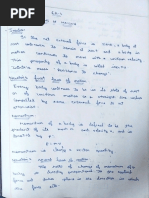 If the net external force is zero, a body at
rest continues to remain at rest and a body
in motion continues to move with a uniform velocity
This property of the body is called
inertia means 'resistance to change'.
Newton's first law of motion
Every body continues to be in its state
of rest or uniform motion in a straight line unless
compelled by some external force to act
otherwise.
Momentum
Momentum of a body is defined to be the
product of its mass m and velocity v, and is
denoted by p
p = mv
Momentum is a vector quantity
Newton's second law of motion
The rate of change of momentum of a
body is directly proportional to the applied
force and takes place in the direction in which
the force acts